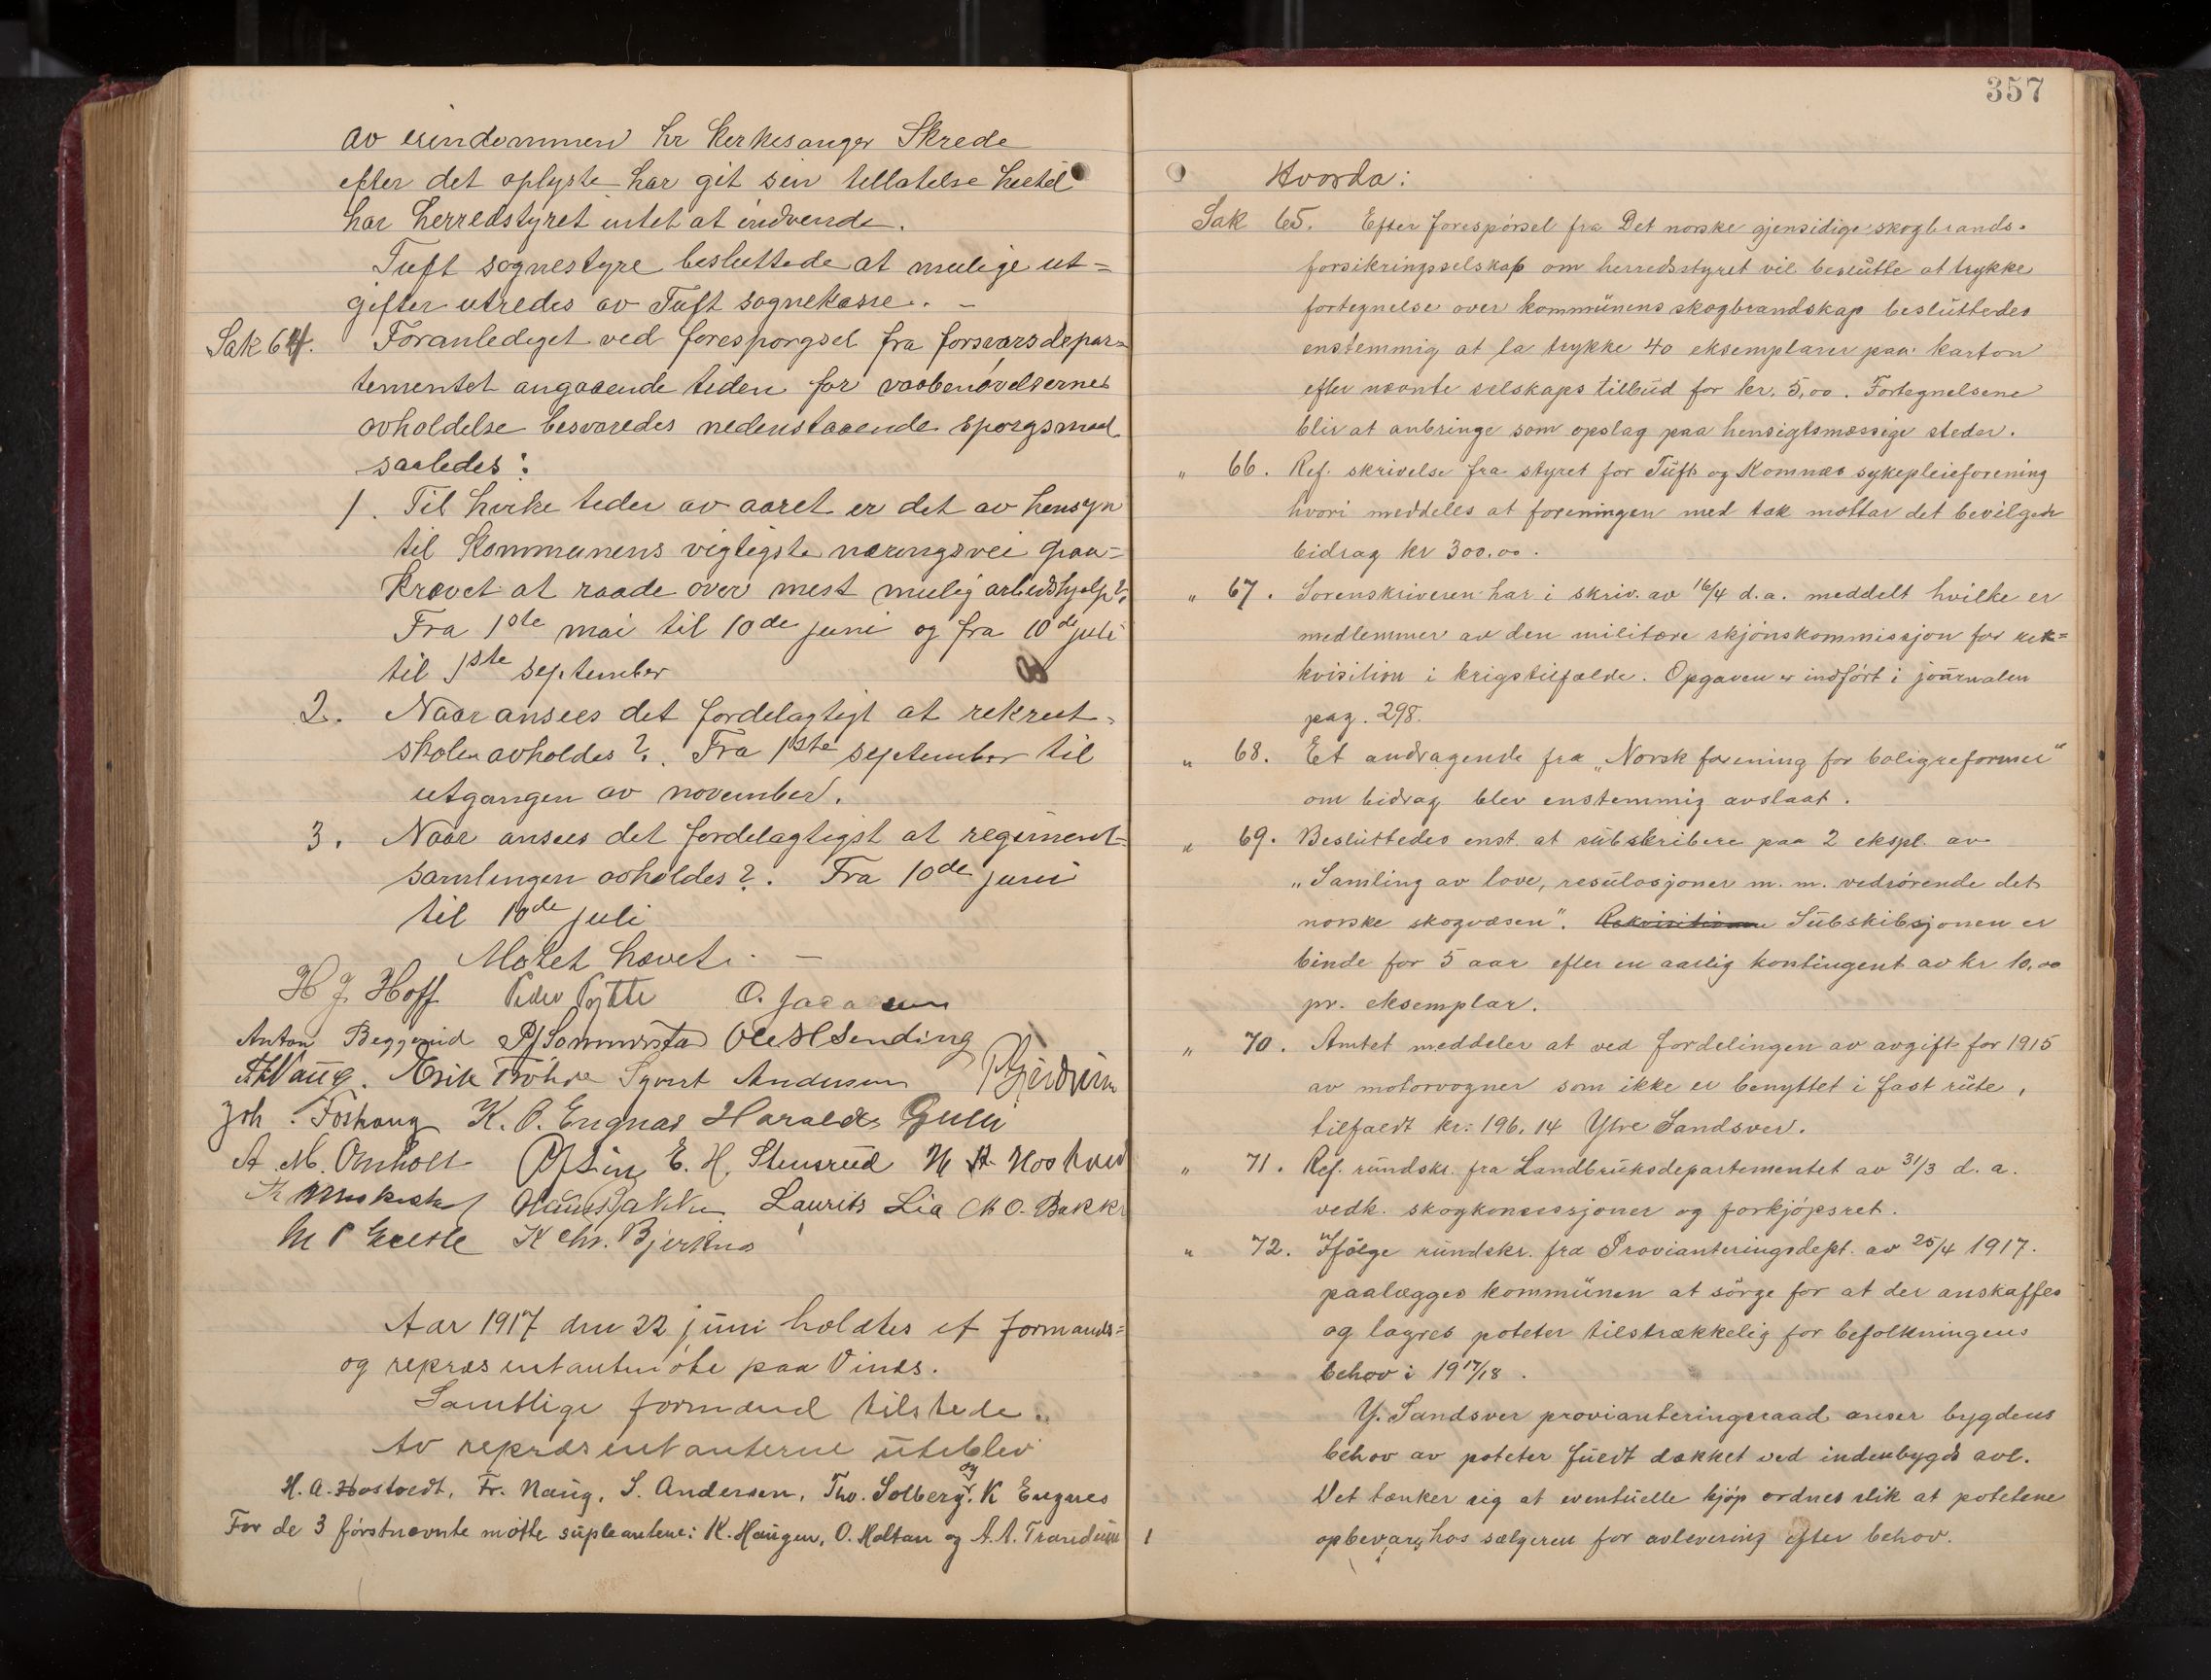 av eiendommen hr kirkesanger Skrede
efter det oplyste har git sin tillatelse hertil
har herredstyret intet at indvende.
Tuft sognestyre besluttede at mulige ut=
gifter utredes av Tuft sognekasse. –
Sak 64. Foranlediget ved forespørgsel fra forsvarsdepar=
tementet angaaende tiden for vaabenøvelsernes
avholdelse besvaredes nedenstaaende spørgsmaal
saaledes:
1. Til hvilke tider av aaret er det av hensyn
til Kommunens vigtigste næringsvei paa=
krævet at raade over mest mulig arbeidshjelp?
Fra 1ste mai til 10de juni og fra 10de juli
til 1ste september
2. Naar ansees det fordelagtigt at rekrut=
skolen avholdes?. Fra 1ste september til
utgangen av november.
3. Naar ansees det fordelagtigst at regiment=
samlingen avholdes?. Fra 10de juni
til 10de juli
Møtet hævet. –
H J Hoff Peder Pytte O. Jacobsen
Anton Beggerud Ole H Sending
Haug. Erik Syvert Andersen
Joh. Foshaug K. O. Engnæs Harald Gulli
A. M. Omholt E. H. Stensrud H A Hostvedt
Hans Bakke Laurits Lia M O. Bakke
M P K Chr. Bjerknes
Aar 1917 den 22 juni holdtes et formands=
og repræsentantmöte paa Vinds.
Samtlige formænd tilstede.
Av repræsentanterne uteblev
H. A. Hostvedt, Fr. Naug, S. Andersen, Tho. Solberg. og K Engnes
For de 3 förstnævnte mötte supleantene: K. Haugen, O. Holtan og A. A. Trandum
357
Hvorda:
Sak 65. Efter forespörsel fra Det norske gjensidige skogbrands-
forsikringsselskap om herredsstyret vil beslutte at trykke
fortegnelse over kommunens skogbrandskap besluttedes
enstemmig at la trykke 40 eksemplarer paa karton
efter nævnte selskaps tilbud for kr. 5,00. Fortegnelsene
blir at anbringe som opslag paa hensigtsmæssige steder.
„ 66. Ref. skrivelse fra styret for Tuft og Komnæs sykepleieforening
hvori meddeles at foreningen med tak mottar det bevilgede
bidrag kr 300.00.
„ 67. Sorenskriveren har i skriv. av 16/4 d.a. meddelt hvilke er
medlemmer av den militære skjönskommissjon for rek=
kvisition i krigstilfælde. Opgaven er indfört i journalen
pag. 298.
„ 68. Et andragende fra „Norsk forening for boligreformer"
om bidrag blev enstemmig avslaat.
„ 69. Besluttedes enst. at subskribere paa 2 ekspl. av
„Samling av love, resulosjoner m. m. vedrörende det
norske skogvæsen". Rekvisitionen Subskibsjonen er
binde for 5 aar efter en aarlig kontingent av kr 10,00
pr. eksemplar.
„ 70. Amtet meddeler at ved fordelingen av avgift for 1915
av motorvogner som ikke er benyttet i fast rute,
tilfaldt kr. 196.14 Ytre Sandsver.
„ 71. Ref. rundskr. fra Landbruksdepartementet av 31/3 d. a.
vedk. skogkonsessjoner og forkjöpsret.
„ 72. Ifölge rundskr. fra Provianteringsdept. av 25/4 1917.
paalægges kommunen at sörge for at der anskaffes
og lagres poteter tilstrækkelig for befolkningens
behov i 1917/18.
Y. Sandsver provianteringsraad anser bygdens
behov av poteter fuldt dækket ved indenbygds avl.
Det tænker sig at eventuelle kjöp ordnes slik at potetene
opbevares hos sælgeren for avlevering efter behov.